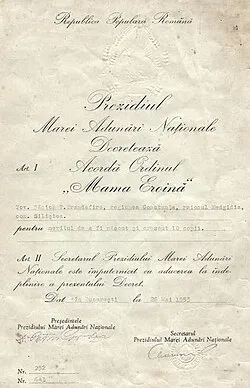 Republica Populara Română
Prezidiul
Marei Adunări Naționale
Decretează
Art. I Acordă Ordinul
„Mama Eroină”
Tov. T. Trandafira, regiunea Constanța, raionul Medgidia,
com.
pentru meritul de a fi născut și crescut 10 copii.
Art. II Secretarul Prezidiului Marei Adunări
Naționale este împuternicit cu aducerea la înde-
plinire a prezentului Decret.
Dat în București la 28 Mai 1953
Președintele
Prezidiului Marei Adunări Naționale
Secretarul
Prezidiului Marei Adunări Naționale
Nr. 252
Nr.